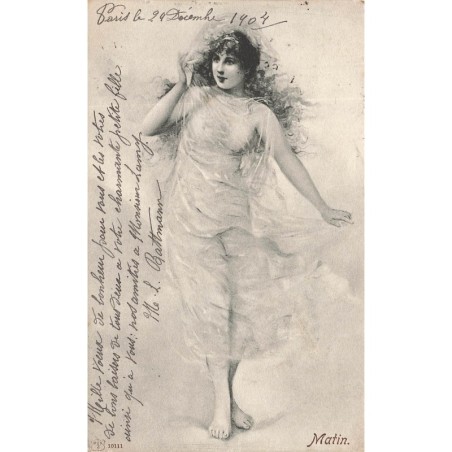 Paris le 29 Décembre 1904
Mille vœux de bonheur pour vous et les vôtres
de bons baisers de tous deux a votre charmante petite fille
ainsi qu'a vous; nos amitiés a Monsieur Lamy
M. L. Battmann
Matin.
10111